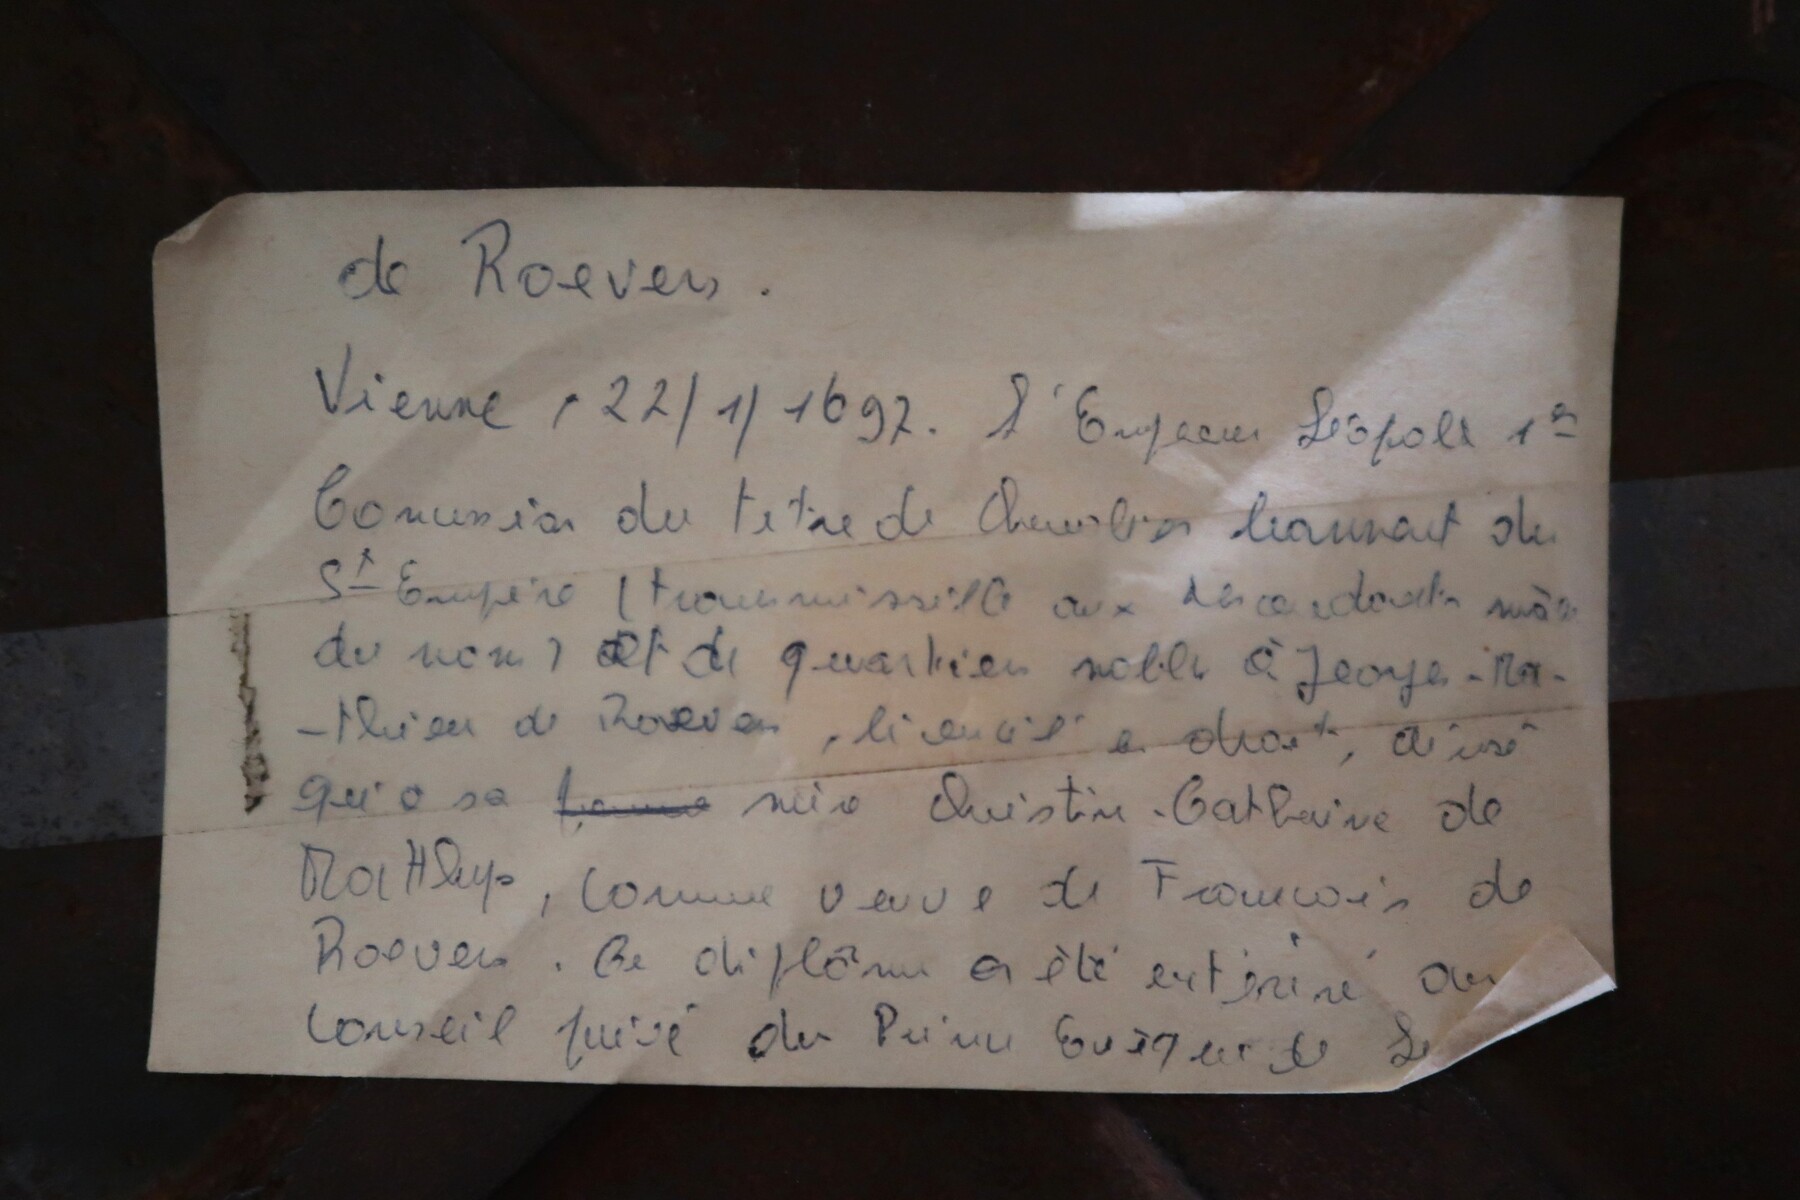 de Roevers.
Vienne, 22/1/1697. L'Empereur Léopold 1er
Concession du titre de Chevalier bannert du
St Empire (transmissible aux descendants mâles
du nom) et de quartiers nobles à Georges-Ma-
-thieu de Roevers, licencié en droit, ainsi
qu'à sa femme mère Christine-Catherine de
Matthys, comme veuve de François de
Roevers. Ce diplôme a été entériné au
Conseil privé du Prince Evêque de